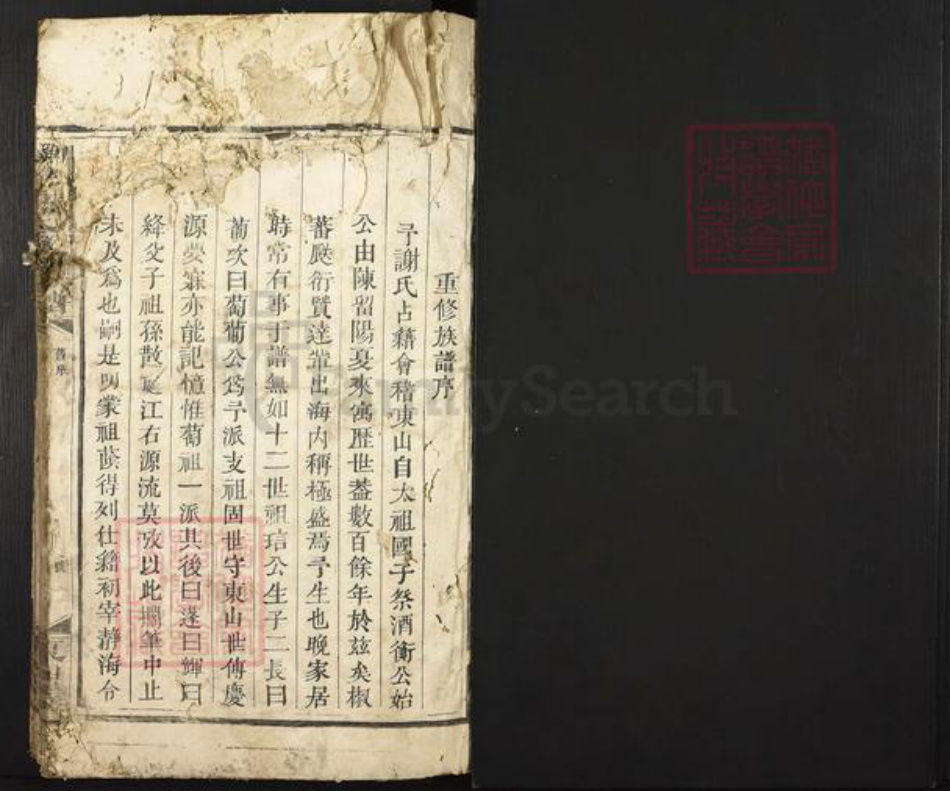 重修族譜序
予謝氏占籍會稽東山自太祖國子祭酒衡公始
公由陳留陽夏來寓歷世葢數百餘年於茲矣椒
蕃瓞衍賢達輩出海内稱極盛焉予生也晚家居
時常有事于譜無如十二世祖琂公生子二長曰
萄次曰葡萄公爲予派支祖固世守東山世傳慶
源夢寐亦能記憶惟萄祖一派其後曰遂曰輝曰
絳父子祖孫散處江右源流莫攷以此擱筆中止
未及爲也嗣是叨蒙祖蔭得列仕籍初宰靜海令
舊序
FamilySearch